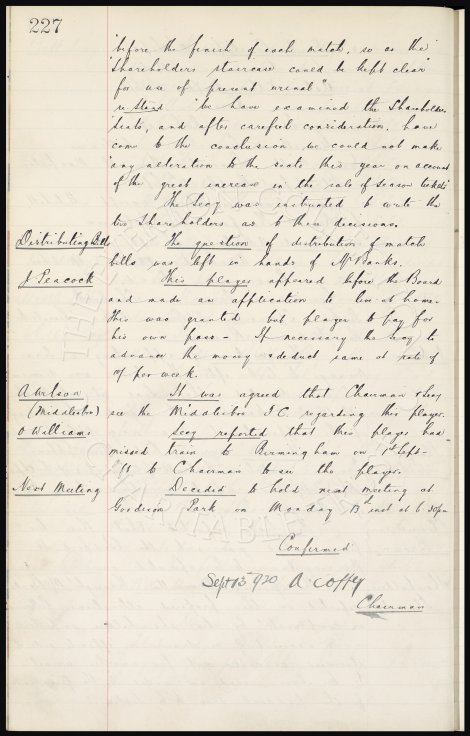 227
"before the finish of each match, so as the
"Shareholders staircase could be kept clear
"for use of present urinal"
re Stand "We have examined the Shareholders
"seats, and after careful consideration, have
"come to the conclusion we could not make
"any alteration to the seats this year on account
"of the great increase in the sale of season tickets"
The Secy was instructed to write the
two Shareholders as to their decisions.
Distributing Bills The question of distribution of match
bills was left in hands of Mr Banks.
J Peacock This player appeared before the Board
and made an application to live at home.
This was granted but player to pay for
his own pass - If necessary the Secy to
advance the money & deduct same at rate of
per week.
A Wilson It was agreed that Chairman & Secy
(Middlesbro) see the Middlesbro F.C. regarding this player.
O Williams Secy reported that this player had
missed train to Birmingham on 1st Sept-
to Chairman to see the player.
Next Meeting Decided to hold next meeting at
Goodison Park on Monday 13th inst at 6.30pm
Confirmed
Sept 13 1920 A Coffey
Chairman